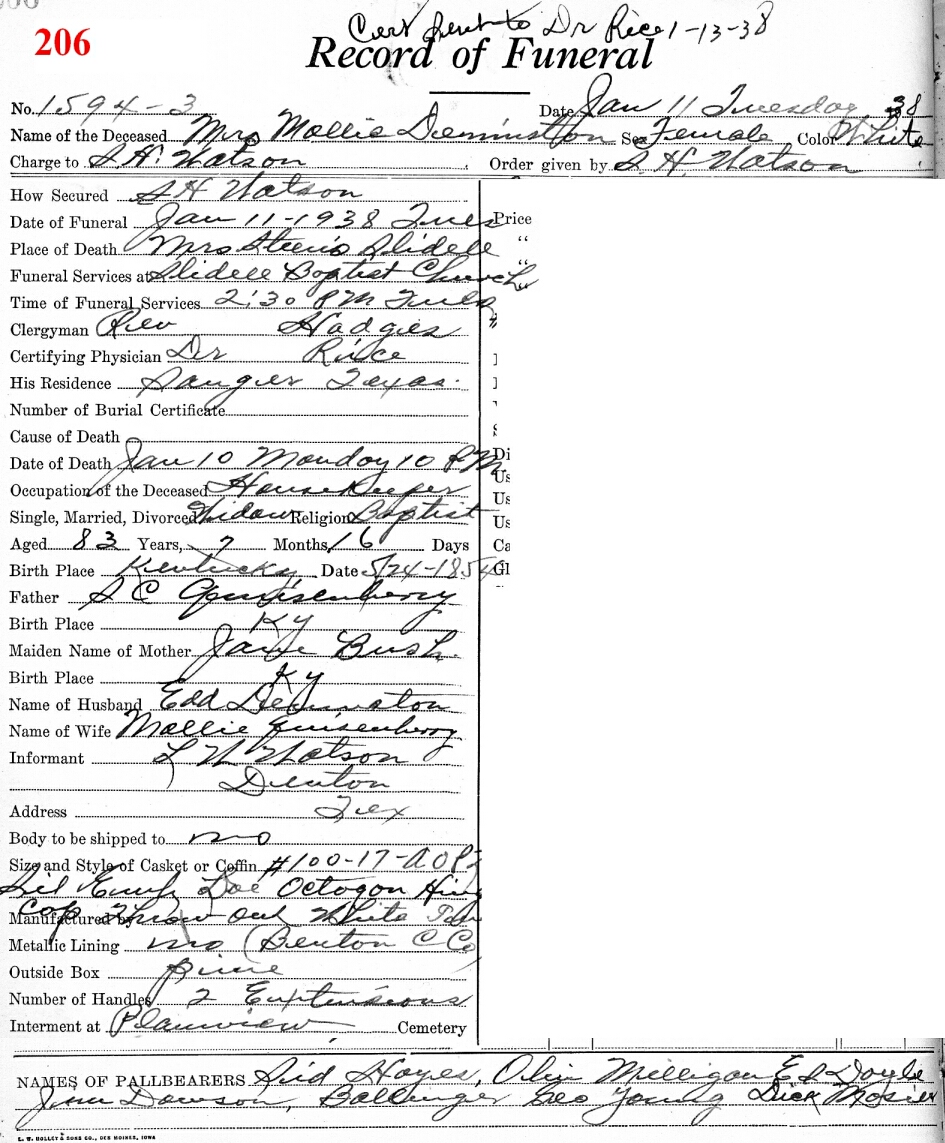 206
Cert sent to Dr Rice 1-13-38
Record of Funeral
No. 1594-3 Date Jan 11 Tuesday 38
Name of the Deceased Mrs Mollie Sex Female Color White
Charge to S. H. Watson Order given by S H Watson
How Secured S H Watson
Date of Funeral Jan 11-1938 Tues Price
Place of Death Mrs Slidell "
Funeral Services at Slidell Baptist Church "
Time of Funeral Services 2:30 PM Tues
Clergyman Rev
Certifying Physician Dr Rice
His Residence Sanger Texas.
Number of Burial Certificate
Cause of Death
Date of Death Jan 10 Monday 10 PM Di
Occupation of the Deceased Housekeeper Us
Single, Married, Divorced Widow Religion Baptist Us
Aged 83 Years, 7 Months 16 Days Ca
Birth Place Kentucky Date 5/24-1854 Gl
Father S C
Birth Place Ky
Maiden Name of Mother Jane Bush
Birth Place Ky
Name of Husband Edd
Name of Wife Mollie Quisenberry
Informant Watson
Denton
Address Tex
Body to be shipped to no
Size and Style of Casket or Coffin #100-17-
Octagon
Manufactured by Throw out White
Metallic Lining no (Denton C Co
Outside Box pine
Number of Handles 2 Extensions
Interment at Plainview Cemetery
NAMES OF PALLBEARERS Sid Hayes, Olin Milligan Ed Doyle
Jim Dawson, Ballinger Geo Young Dick Mosier
L. W. HOLLEY & SONS CO., DES MOINES, IOWA